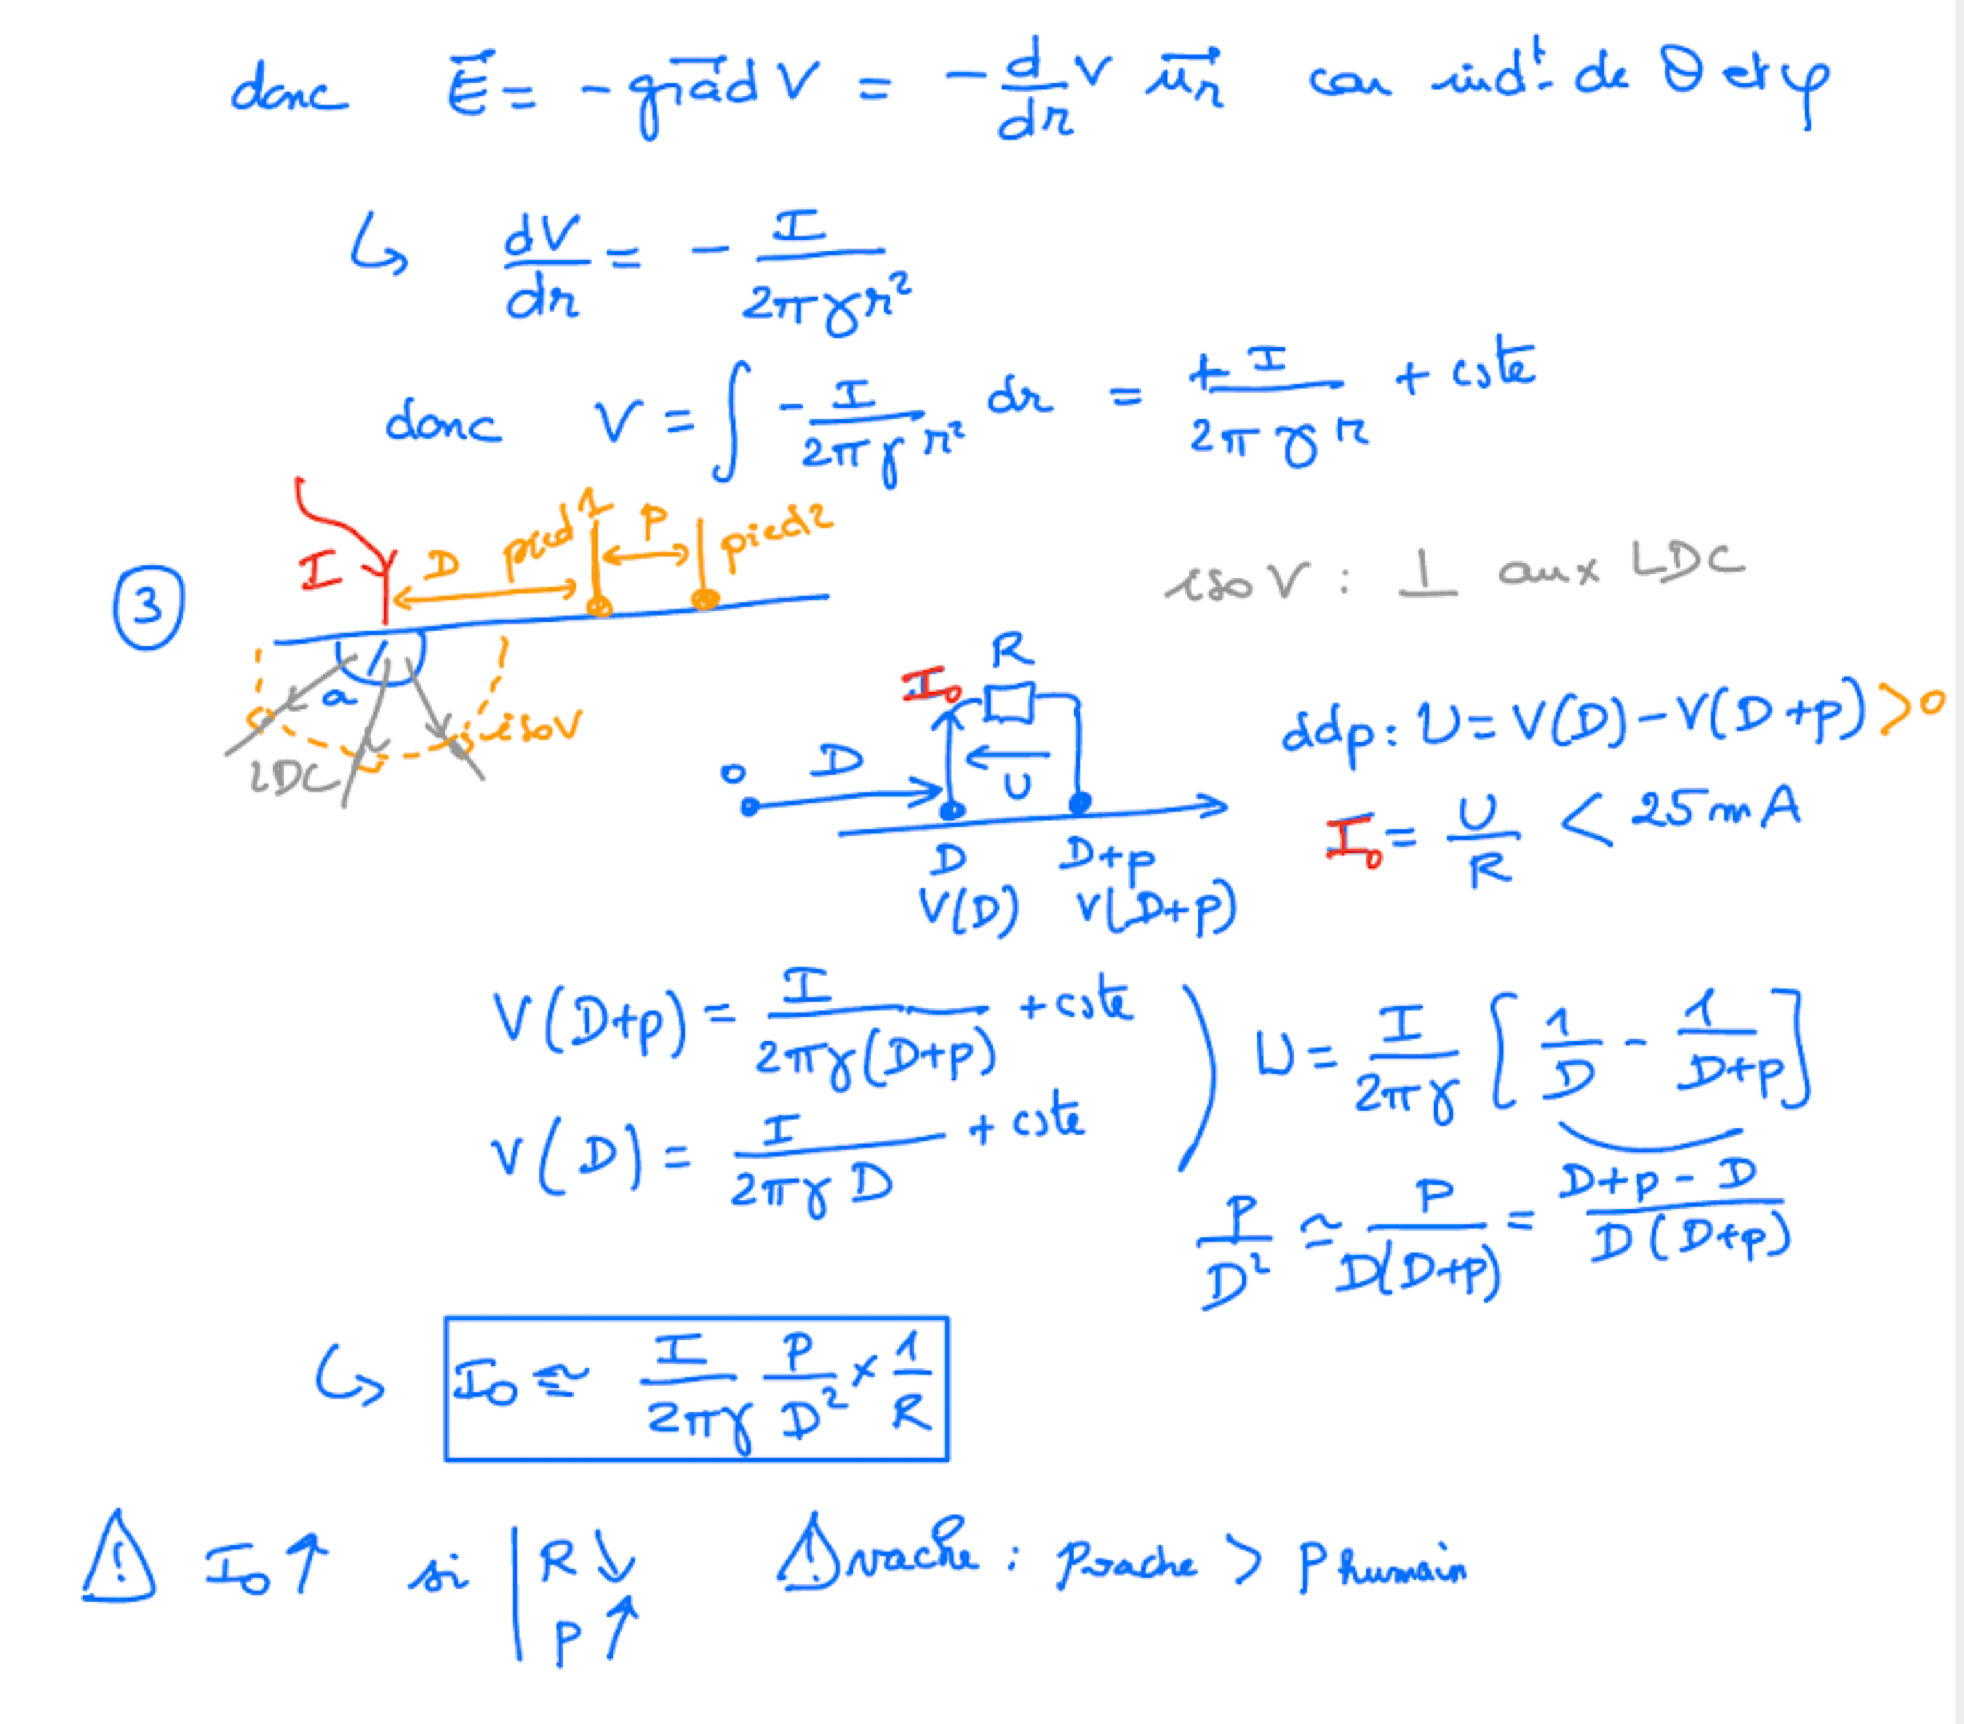 donc E⃗ = - grad⃗ V = - d/dr V u⃗r car indt de θ et φ
↳ dV/dr = - I/2πγr²
donc V = ∫ - I/2πγr² dr = + I/2πγr + cste
③ I D pied 1 p pied 2
isoV : ⊥ aux LDC
a
isoV
LDC
I₀ R
U
O D
D D+p
V(D) V(D+p)
ddp : U = V(D) - V(D+p) > 0
I₀ = U/R < 25 mA
V(D+p) = I/2πγ(D+p) + cste
V(D) = I/2πγD + cste
U = I/2πγ [1/D - 1/D+p]
p/D² ≃ p/D(D+p) = D+p-D/D(D+p)
↳ I₀ ≃ I/2πγ p/D² × 1/R
⚠ I₀ ↑ si | R ↓
p ↑
⚠ vache : pvache > phumain